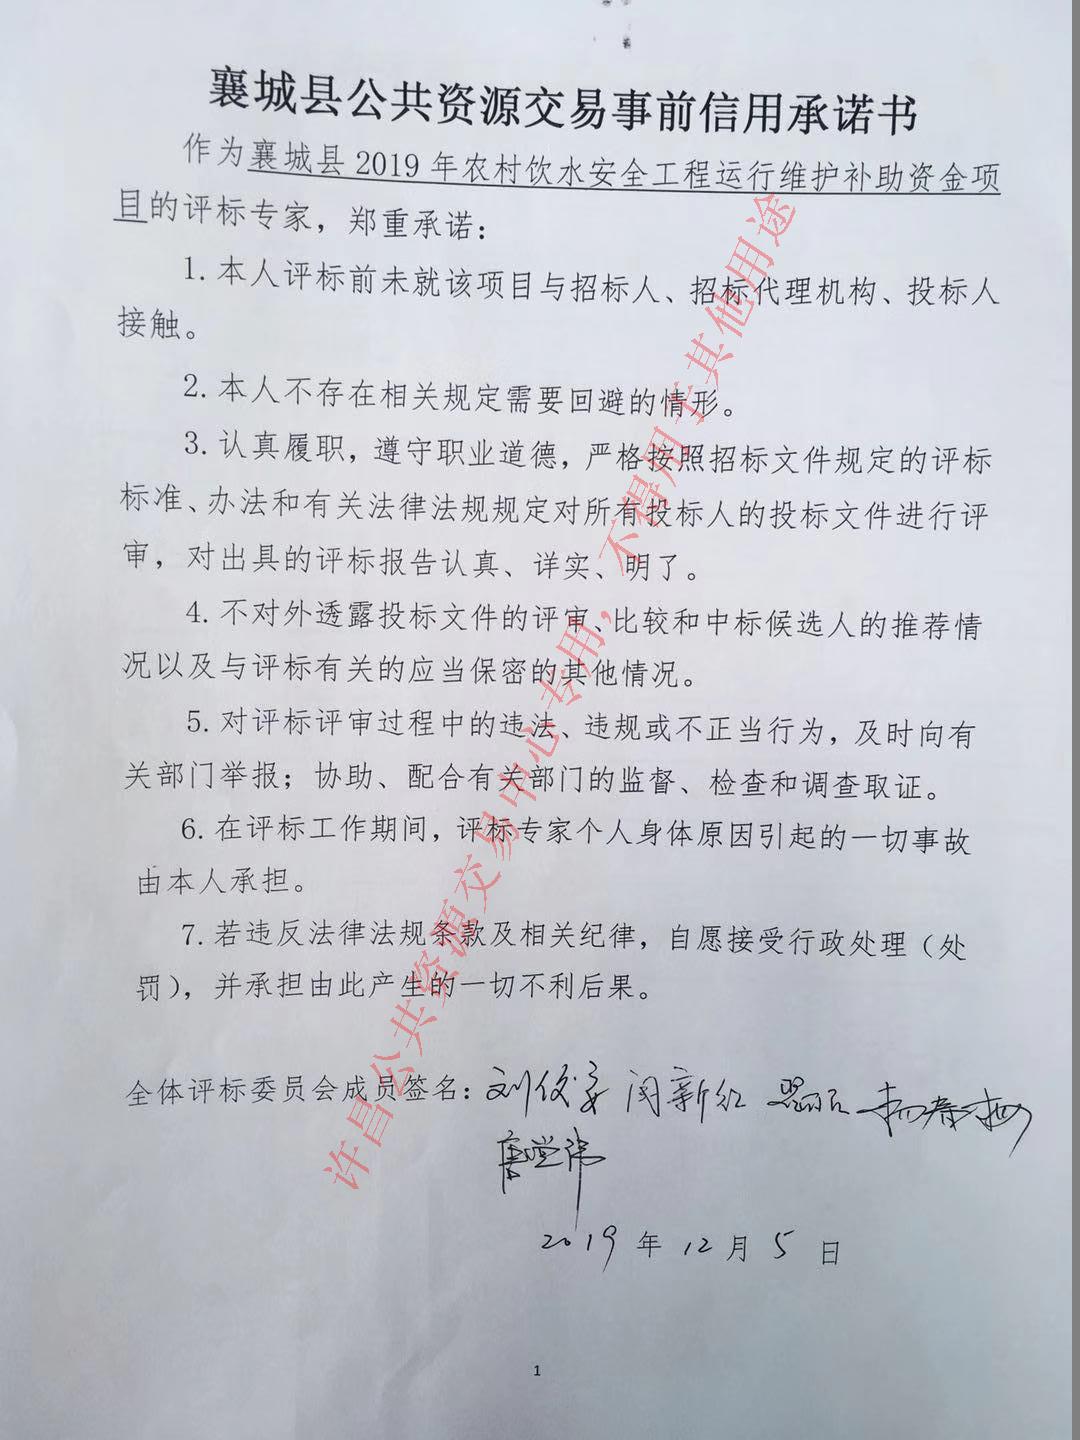 襄城县公共资源交易事前信用承诺书
作为襄城县 2019 年农村饮水安全工程运行维护补助资金项
目的评标专家，郑重承诺：
1. 本人评标前未就该项目与招标人、招标代理机构、投标人
接触。
2. 本人不存在相关规定需要回避的情形。
3. 认真履职，遵守职业道德，严格按照招标文件规定的评标
标准、办法和有关法律法规规定对所有投标人的投标文件进行评
审，对出具的评标报告认真、详实、明了。
4. 不对外透露投标文件的评审、比较和中标候选人的推荐情
况以及与评标有关的应当保密的其他情况。
5. 对评标评审过程中的违法、违规或不正当行为，及时向有
关部门举报；协助、配合有关部门的监督、检查和调查取证。
6. 在评标工作期间，评标专家个人身体原因引起的一切事故
由本人承担。
7. 若违反法律法规条款及相关纪律，自愿接受行政处理（处
罚），并承担由此产生的一切不利后果。
全体评标委员会成员签名：刘俊 闵新红
2019 年 12 月 5 日
1
许昌公共资源交易中心专用，不得用于其他用途